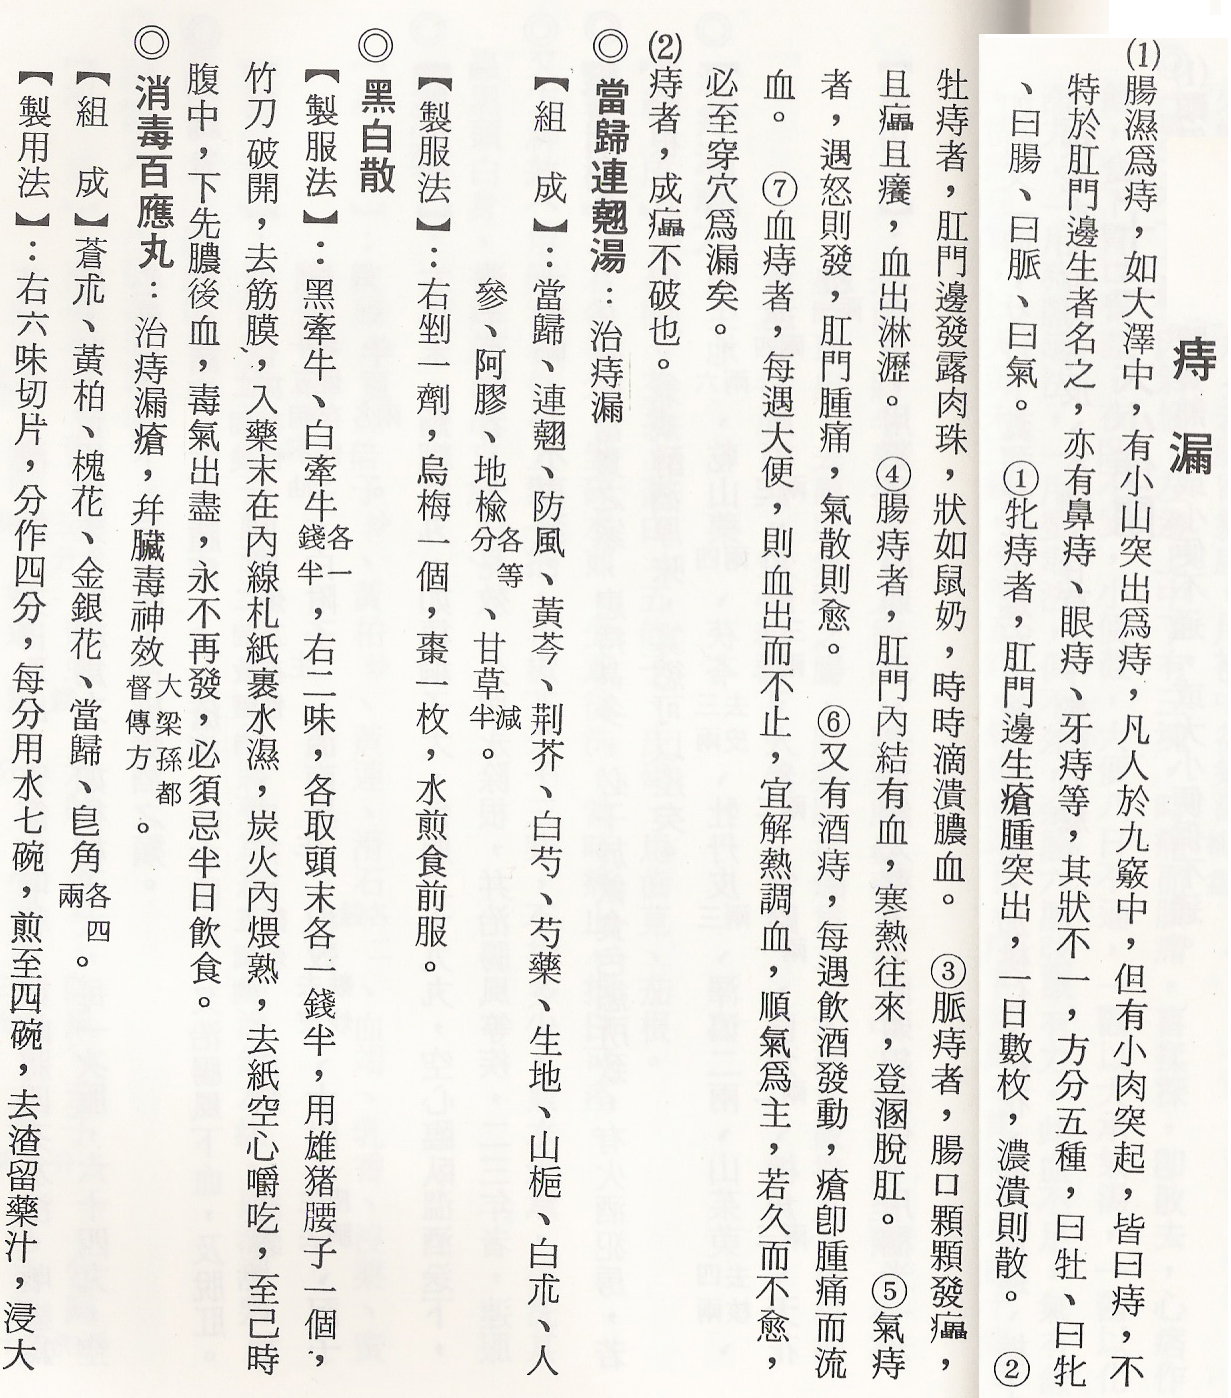 痔漏
⑴腸濕爲痔，如大澤中，有小山突出爲痔，凡人於九竅中，但有小肉突起，皆曰痔，不
特於肛門邊生者名之，亦有鼻痔、眼痔、牙痔等，其狀不一，方分五種，曰牡、曰牝
、曰腸、曰脈、曰氣。 ①牝痔者，肛門邊生瘡腫突出，一日數枚，濃潰則散。 ②
牡痔者，肛門邊發露肉珠，狀如鼠奶，時時滴潰膿血。 ③脈痔者，腸口顆顆發㿔，
且㿔且癢，血出淋瀝。 ④腸痔者，肛門內結有血，寒熱往來，登溷脫肛。 ⑤氣痔
者，遇怒則發，肛門腫痛，氣散則愈。 ⑥又有酒痔，每遇飲酒發動，瘡卽腫痛而流
血。 ⑦血痔者，每遇大便，則血出而不止，宜解熱調血，順氣爲主，若久而不愈，
必至穿穴爲漏矣。
⑵痔者，成㿔不破也。
◎當歸連翹湯：治痔漏
【組 成】：當歸、連翹、防風、黃芩、荆芥、白芍、芍藥、生地、山梔、白朮、人
參、阿膠、地楡各等分、甘草減半。
【製服法】：右剉一劑，烏梅一個，棗一枚，水煎食前服。
◎黑白散
【製服法】：黑牽牛、白牽牛各一錢半，右二味，各取頭末各一錢半，用雄猪腰子一個，
竹刀破開，去筋膜，入藥末在內線札紙裹水濕，炭火內煨熟，去紙空心嚼吃，至己時
腹中，下先膿後血，毒氣出盡，永不再發，必須忌半日飲食。
◎消毒百應丸：治痔漏瘡，幷臟毒神效大梁孫都督傳方。
【組 成】蒼朮、黃柏、槐花、金銀花、當歸、皀角各四兩。
【製用法】：右六味切片，分作四分，每分用水七碗，煎至四碗，去渣留藥汁，浸大